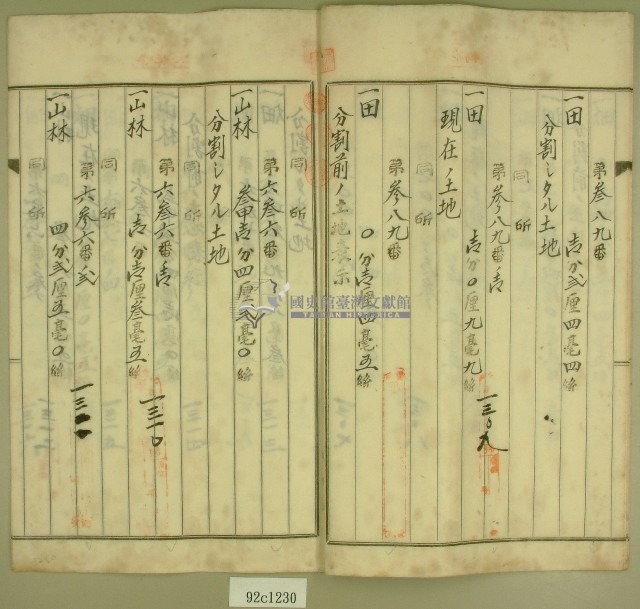 第参八九番
一田 壱分弐厘四毫四絲
分割シタル土地
同所
第参八九番ノ壱
一田 壱分〇厘九毫九絲
一三〇九
現在ノ土地
同所
第参八九番
一田 〇分壱厘四毫五絲
分割前ノ土地表示
同所
第六参六番
一山林 参甲壱分四厘弐毫〇絲
分割シタル土地
同所
第六参六番ノ壱
一山林 壱分壱厘参毫五絲
一三一〇
同所
第六参六番ノ弐
一山林 四分弐厘五毫〇絲
一三一一
國史館臺灣文獻館
TAIWAN HISTORICA
92c1230